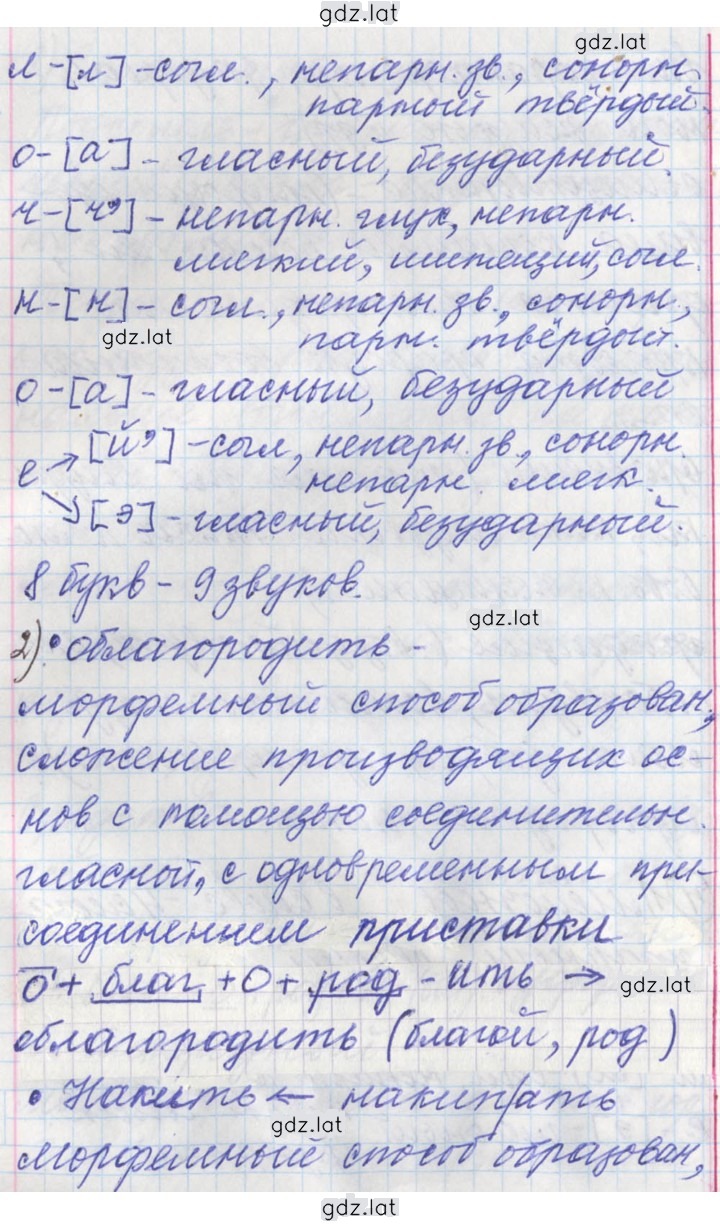 gdz.lat
gdz.lat
л-[л]-согл., непарн. зв., сонорн.
парный твёрдый.
о-[а]- гласный, безударный.
ч-[ч']- непарн. глух, непарн.
мягкий, шипящий, согл.
н-[н]- согл., непарн. зв., сонорн.,
gdz.lat
парн. твёрдый.
о-[а]- гласный, безударный
е → [й']-согл, непарн. зв., сонорн.
непарн. мягк.
↘ [э]- гласный, безударный.
8 букв - 9 звуков.
gdz.lat
2) • облагородить -
морфемный способ образован,
сложение производящих ос-
нов с помощью соединительн.
гласной, с одновременным при-
соединением приставки
о + благ + о + род - ить →
gdz.lat
облагородить (благой, род)
• Накипь ← накип/ать
gdz.lat
морфемный способ образован,
gdz.lat